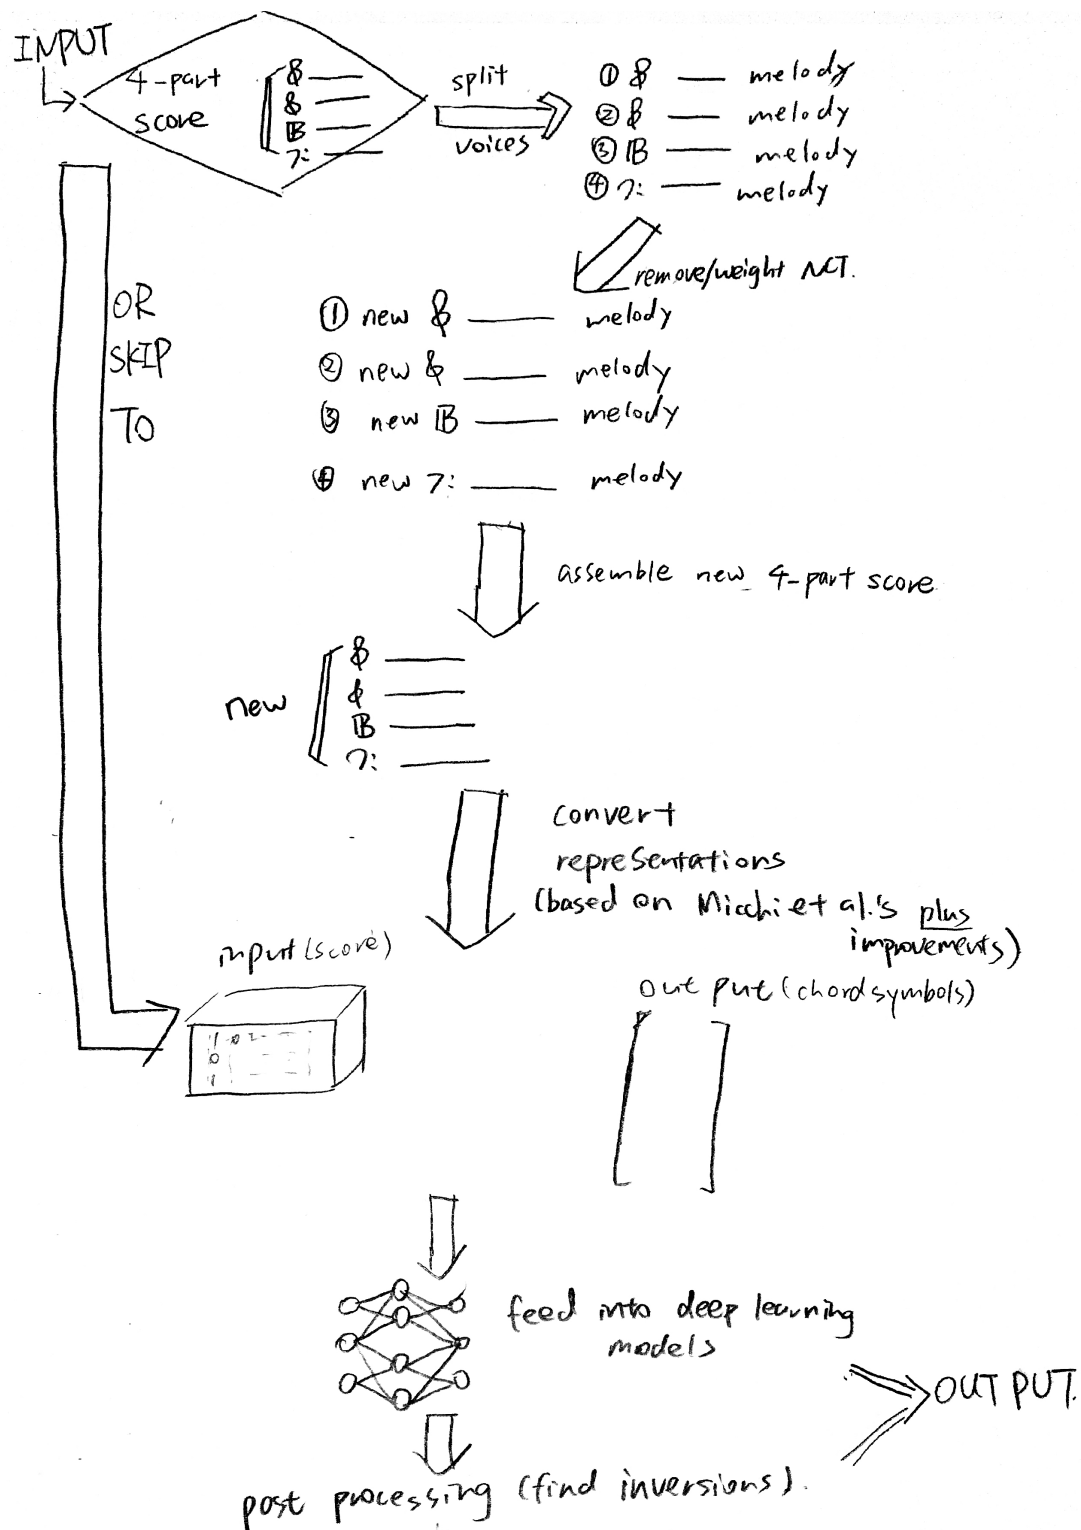 INPUT
4-part
score
split
voices
① 𝄞 — melody
② 𝄞 — melody
③ 𝄡 — melody
④ 𝄢 — melody
remove/weight NCT.
OR
SKIP
TO
① new 𝄞 — melody
② new 𝄞 — melody
③ new 𝄡 — melody
④ new 𝄢 — melody
assemble new 4-part score
new
convert
representations
(based on Micchi et al.'s plus
improvements)
input (score)
output (chord symbols)
feed into deep learning
models
OUTPUT.
post processing (find inversions).